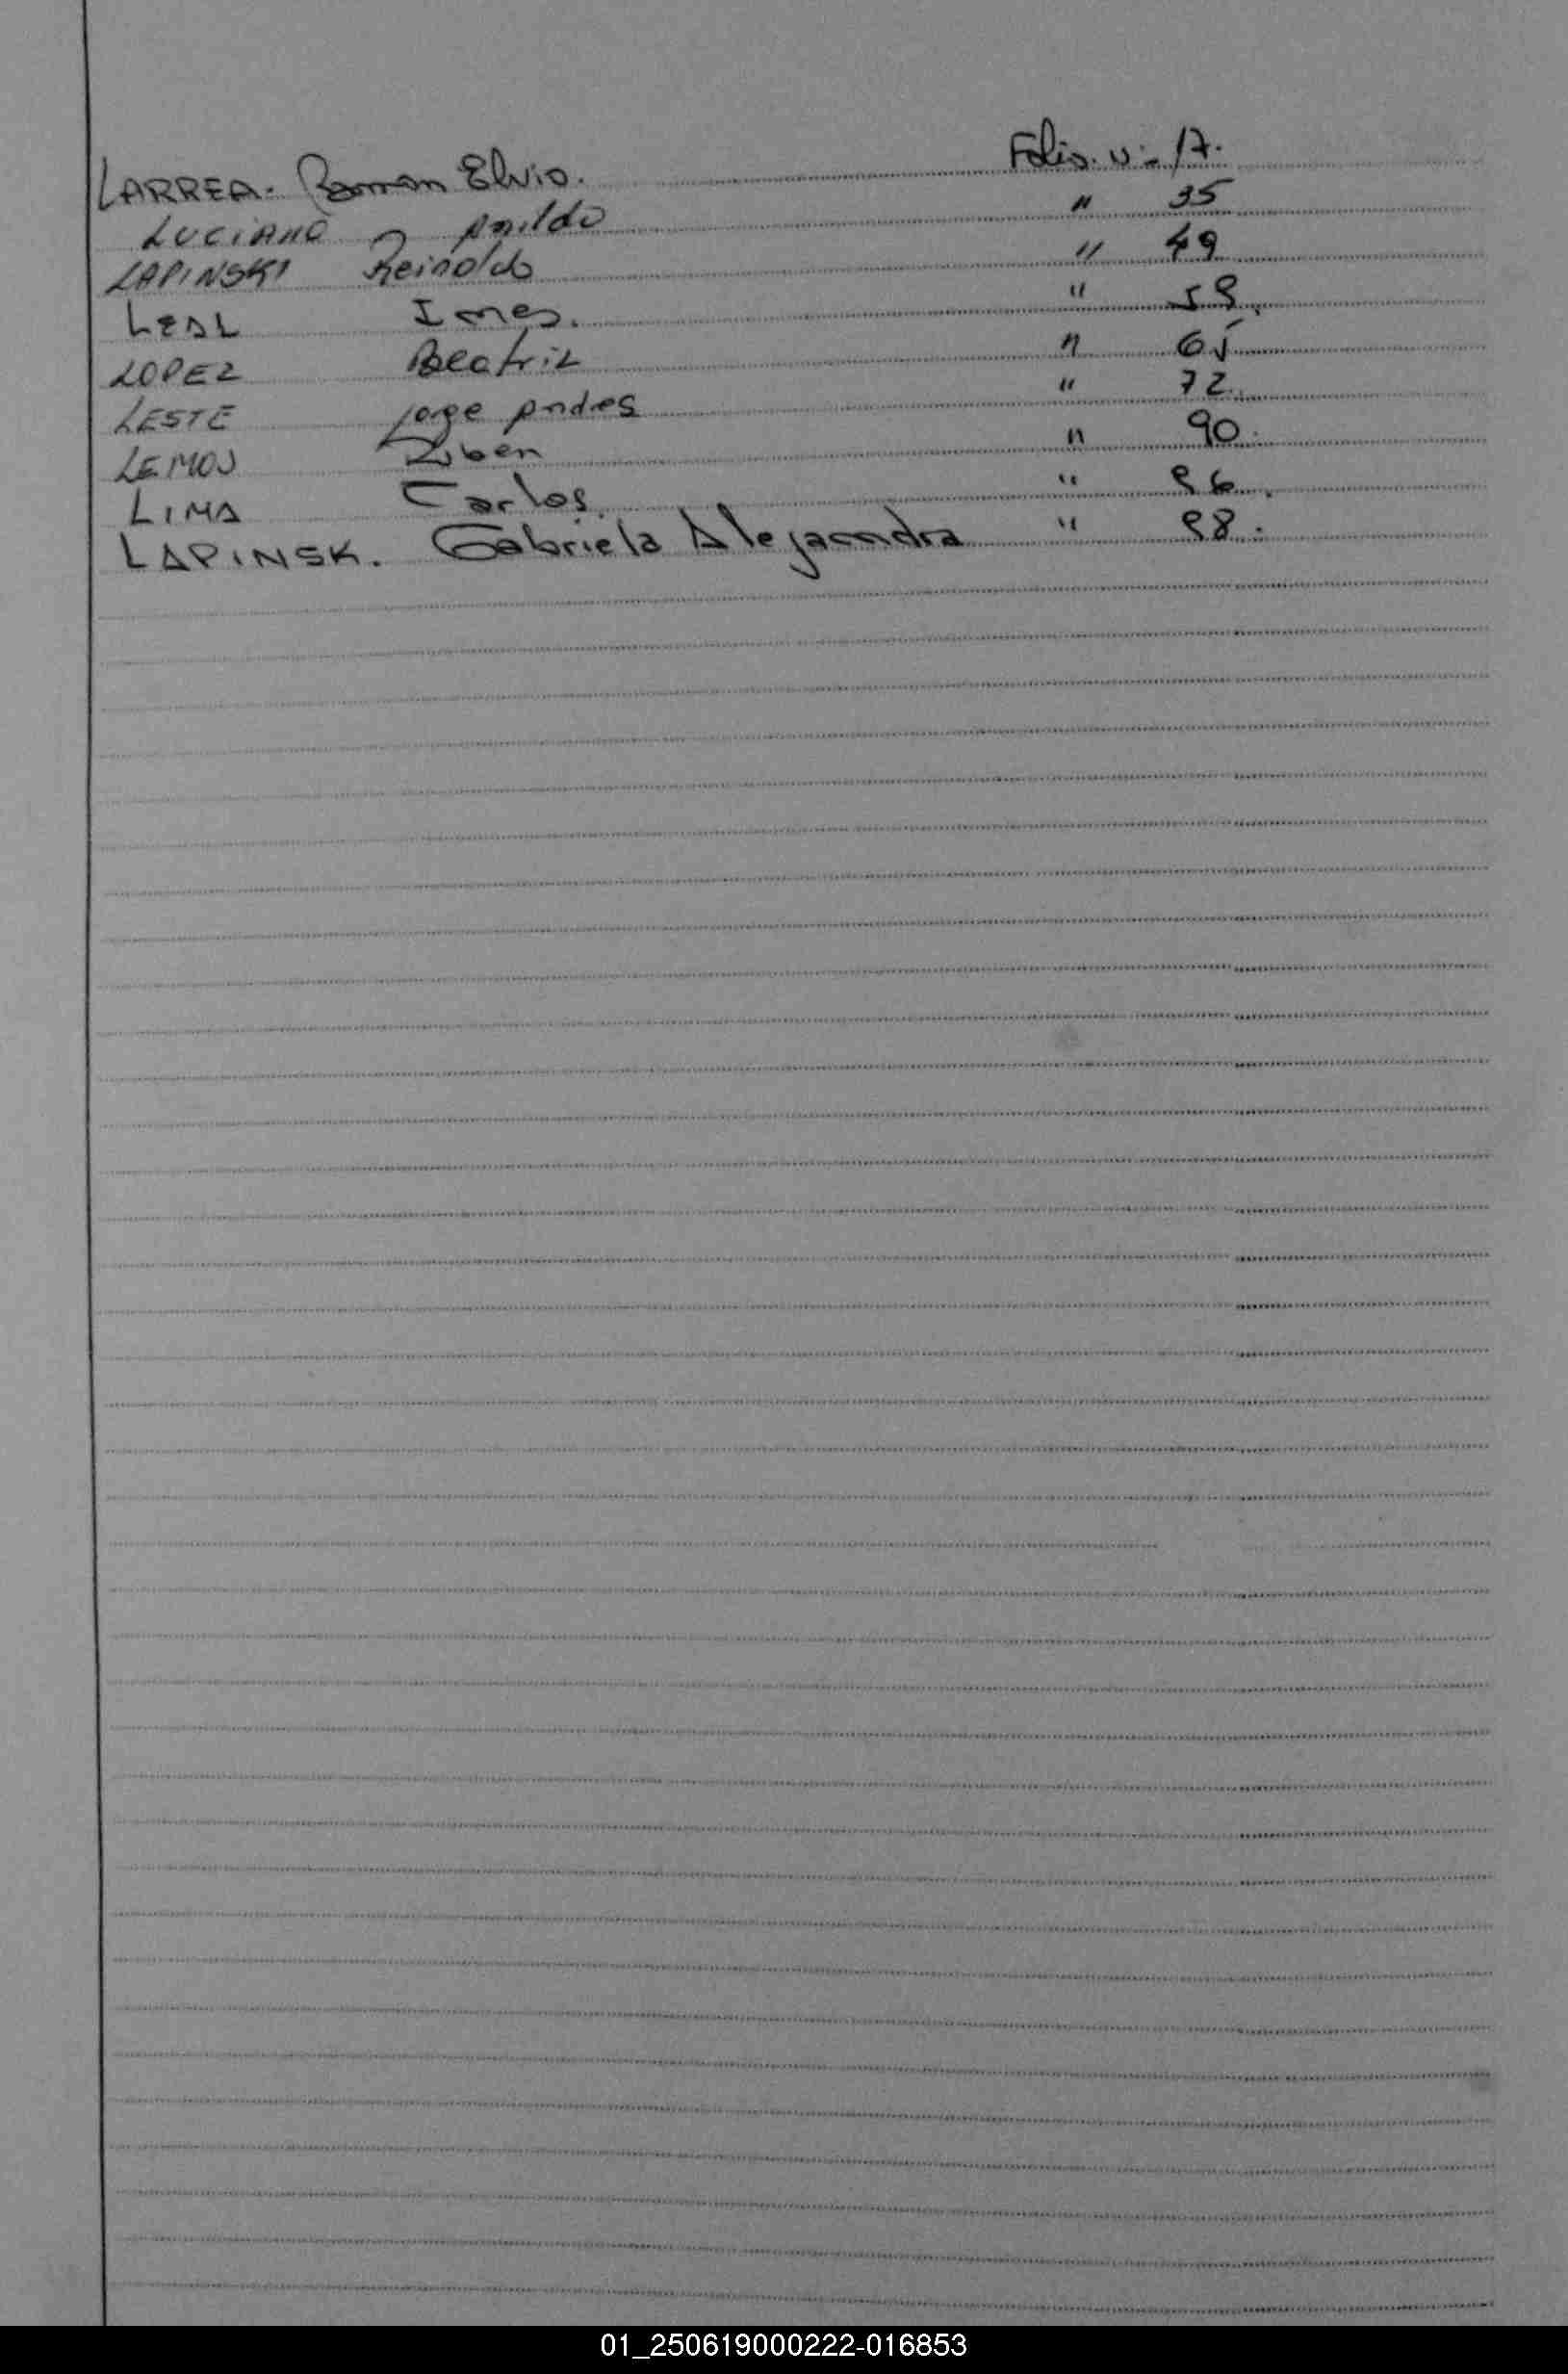 LARREA. Ramon Elvio. Folio. N:- 17.
LUCIANO Anildo " 35
LAPINSKI Reinoldo " 49
LEAL Ines. " 59.
LOPEZ Beatriz " 65
LESTE Jorge Andres " 72.
LEMOS Ruben " 90.
LIMA Carlos. " 96.
LAPINSK. Gabriela Alejandra " 98.
01_250619000222-016853